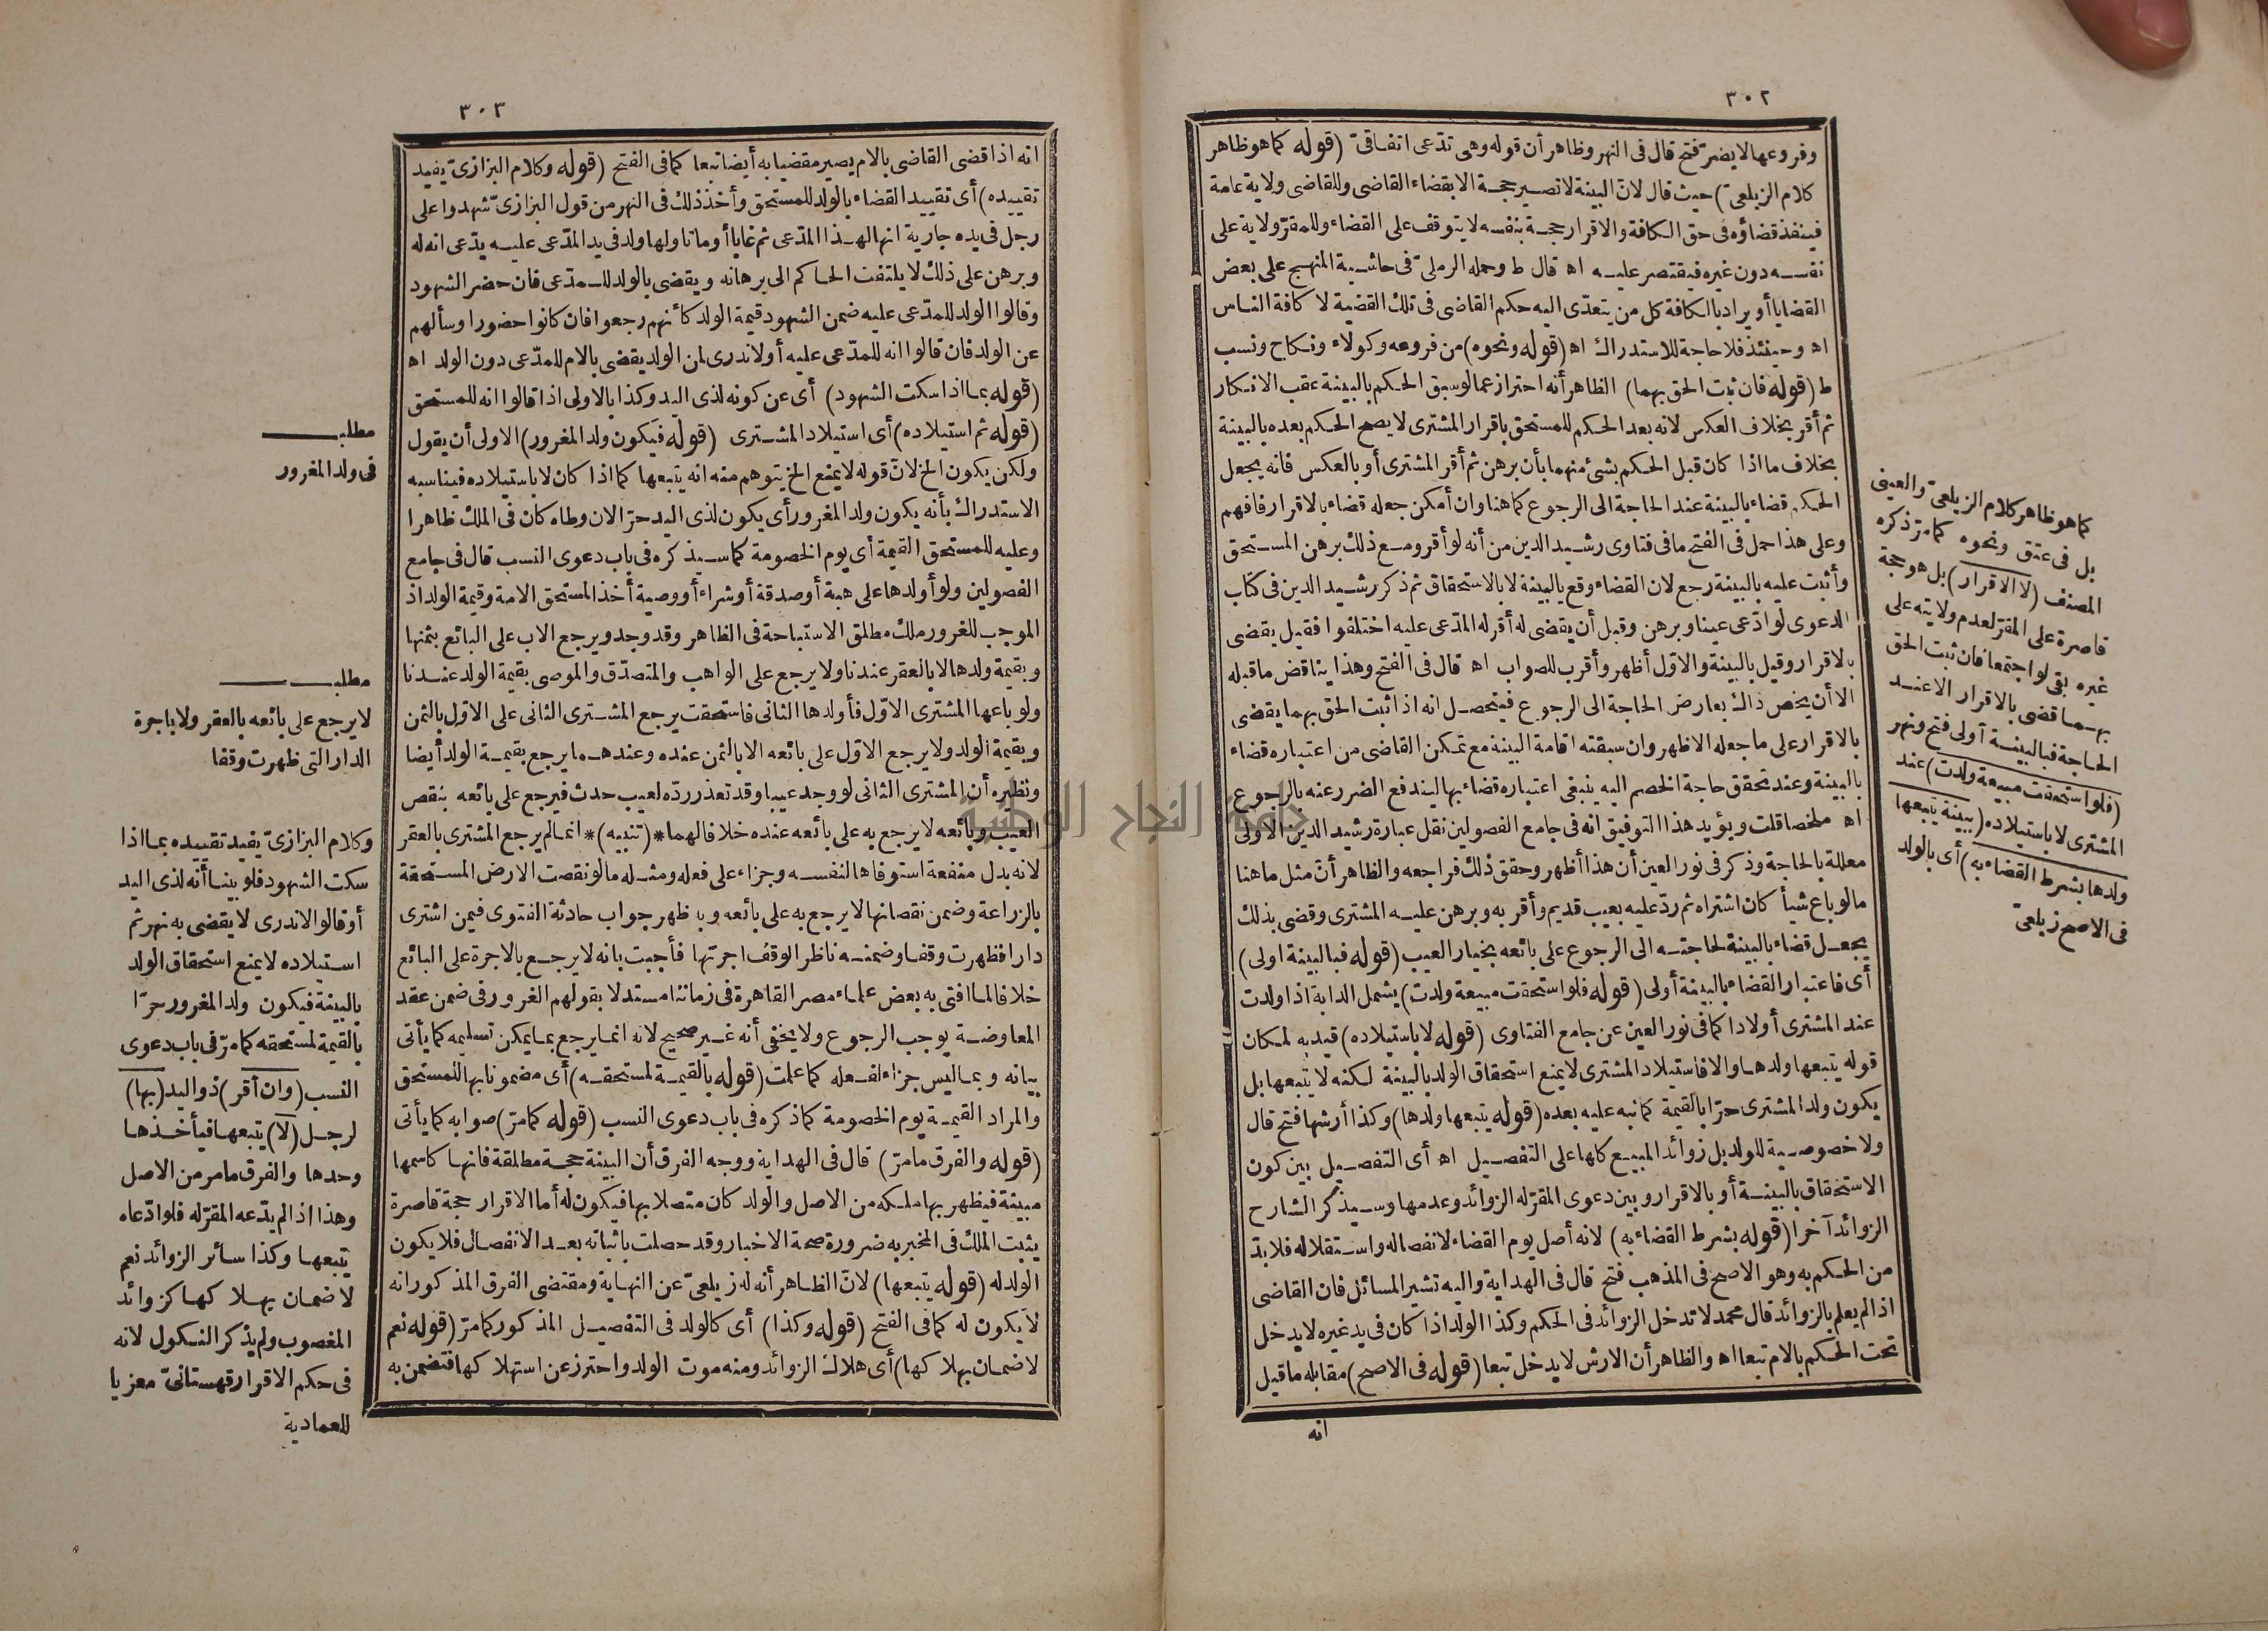 ٣٠٢
وفروعها لا يضر فتح قال فى النهر وظاهر أن قوله وهى تدّعى اتفاقىّ (قوله كما هو ظاهر
كلام الزيلعىّ) حيث قال لانّ البينة لا تصير حجة الا بقضاء القاضى وللقاضى ولاية عامة
فينفذ قضاؤه فى حق الكافة والاقرار حجة بنفسه لا يتوقف على القضاء وللمقرّ ولاية على
نفسه دون غيره فيقتصر عليه اه قال ط وحمله الرملىّ فى حاشية المنهج على بعض
القضايا أو يراد بالكافة كل من يتعدّى اليه حكم القاضى فى تلك القضية لا كافة الناس
اه وحينئذ فلا حاجة للاستدراك اه (قوله ونحوه) من فروعه وكولاء ونكاح ونسب
ط (قوله فان ثبت الحق بهما) الظاهر أنه احتراز عما لو سبق الحكم بالبينة عقب الانكار
ثم أقر بخلاف العكس لانه بعد الحكم للمستحق باقرار المشترى لا يصح الحكم بعده بالبينة
بخلاف ما اذا كان قبل الحكم بشئ منهما بأن برهن ثم أقر المشترى أو بالعكس فانه يجعل
الحكم قضاء بالبينة عند الحاجة الى الرجوع كما هنا وان أمكن جعله قضاء بالاقرار فافهم
وعلى هذا حمل فى الفتح ما فى فتاوى رشيد الدين من أنه لو أقر ومع ذلك برهن المستحق
وأثبت عليه بالبينة رجع لان القضاء وقع بالبينة لا بالاستحقاق ثم ذكر رشيد الدين فى كتاب
الدعوى لو ادّعى عينا وبرهن وقبل أن يقضى له أقر له المدّعى عليه اختلفوا فقيل يقضى
بالاقرار وقيل بالبينة والاوّل أظهر وأقرب للصواب اه قال فى الفتح وهذا يناقض ما قبله
الا أن يخص ذاك بعارض الحاجة الى الرجوع فيتحصل انه اذا ثبت الحق بهما يقضى
بالاقرار على ما جعله الاظهر وان سبقته اقامة البينة مع تمكن القاضى من اعتباره قضاء
بالبينة وعند تحقق حاجة الخصم اليه ينبغى اعتباره قضاء بها ليندفع الضرر عنه بالرجوع
اه ملخصا قلت ويؤيد هذا التوفيق انه فى جامع الفصولين نقل عبارة رشيد الدين الاولى
معللة بالحاجة وذكر فى نور العين أن هذا أظهر وحقق ذلك فراجعه والظاهر أنّ مثل ما هنا
ما لو باع شيأ كان اشتراه ثم ردّ عليه بعيب قديم وأقر به وبرهن عليه المشترى وقضى بذلك
يجعل قضاء بالبينة لحاجته الى الرجوع على بائعه بخيار العيب (قوله فبالبينة اولى)
أى فاعتبار القضاء بالبينة أولى (قوله فلو استحقت مبيعة ولدت) يشمل الدابة اذا ولدت
عند المشترى أولادا كما فى نور العين عن جامع الفتاوى (قوله لا باستيلاده) قيد به لمكان
قوله يتبعها ولدها والا فاستيلاد المشترى لا يمنع استحقاق الولد بالبينة لكنه لا يتبعها بل
يكون ولد المشترى حرّا بالقيمة كما نبه عليه بعده (قوله يتبعها ولدها) وكذا أرشها فتح قال
ولا خصوصية للولد بل زوائد المبيع كلها على التفصيل اه أى التفصيل بين كون
الاستحقاق بالبينة أو بالاقرار وبين دعوى المقرّ له الزوائد وعدمها وسيذكر الشارح
الزوائد آخرا (قوله بشرط القضاء به) لانه أصل يوم القضاء لانفصاله واستقلاله فلا بدّ
من الحكم به وهو الاصح فى المذهب فتح قال فى الهداية واليه تشير المسائل فان القاضى
اذا لم يعلم بالزوائد قال محمد لا تدخل الزوائد فى الحكم وكذا الولد اذا كان فى يد غيره لا يدخل
تحت الحكم بالام تبعا اه والظاهر أن الارش لا يدخل تبعا (قوله فى الاصح) مقابله ما قيل
انه
كما هو ظاهر كلام الزيلعىّ والعينى
بل فى عتق ونحوه كما مرّ ذكره
المصنف (لا الاقرار) بل هو حجة
قاصرة على المقرّ لعدم ولايته على
غيره بقى لو اجتمعا فان ثبت الحق
بهما قضى بالاقرار الا عند
الحاجة فبالبينة أولى فتح ونهر
(فلو استحقت مبيعة ولدت) عند
المشترى لا باستيلاده (ببينة يتبعها
ولدها بشرط القضاء به) أى بالولد
فى الاصح زيلعىّ
٣٠٣
انه اذا قضى القاضى بالام يصير مقضيا به أيضا تبعا كما فى الفتح (قوله وكلام البزازىّ يفيد
تقييده) أى تقييد القضاء بالولد للمستحق وأخذ ذلك فى النهر من قول البزازىّ شهدوا على
رجل فى يده جارية انها لهذا المدّعى ثم غابا أو ماتا ولها ولد فى يد المدّعى عليه يدّعى انه له
وبرهن على ذلك لا يلتفت الحاكم الى برهانه ويقضى بالولد للمدعى فان حضر الشهود
وقالوا الولد للمدّعى عليه ضمن الشهود قيمة الولد كأنهم رجعوا فان كانوا حضورا وسألهم
عن الولد فان قالوا انه للمدّعى عليه أو لا ندرى لمن الولد يقضى بالام للمدّعى دون الولد اه
(قوله بما اذا سكت الشهود) أى عن كونه لذى اليد وكذا بالاولى اذا قالوا انه للمستحق
(قوله ثم استيلاده) أى استيلاد المشترى (قوله فيكون ولد المغرور) الاولى أن يقول
ولكن يكون الخ لانّ قوله لا يمنع الخ يتوهم منه انه يتبعها كما اذا كان لا باستيلاده فيناسبه
الاستدراك بأنه يكون ولد المغرور أى يكون لذى اليد حرّا لان وطاه كان فى الملك ظاهرا
وعليه للمستحق القيمة أى يوم الخصومة كما سيذكره فى باب دعوى النسب قال فى جامع
الفصولين ولو أولدها على هبة أو صدقة أو شراء أو وصية أخذ المستحق الامة وقيمة الولد اذ
الموجب للغرور ملك مطلق الاستباحة فى الظاهر وقد وجد ويرجع الاب على البائع بثمنها
وبقيمة ولدها لا بالعقر عندنا ولا يرجع على الواهب والمتصدّق والموصى بقيمة الولد عندنا
ولو باعها المشترى الاوّل فأولدها الثانى فاستحقت يرجع المشترى الثانى على الاوّل بالثمن
وبقيمة الولد ولا يرجع الاوّل على بائعه الا بالثمن عنده وعندهما يرجع بقيمة الولد أيضا
ونظيره أن المشترى الثانى لو وجد عيبا وقد تعذر ردّه لعيب حدث فيرجع على بائعه بنقص
العيب وبائعه لا يرجع به على بائعه عنده خلافا لهما *(تنبيه)* انما لم يرجع المشترى بالعقر
لانه بدل منفعة استوفاها لنفسه وجزاء على فعله ومثله ما لو نقصت الارض المستحقة
بالزراعة وضمن نقصانها لا يرجع به على بائعه وبه ظهر جواب حادثة الفتوى فيمن اشترى
دارا فظهرت وقفا وضمنه ناظر الوقف اجرتها فأجبت بانه لا يرجع بالاجرة على البائع
خلافا لما افتى به بعض علماء مصر القاهرة فى زماننا مستدلا بقولهم الغرور فى ضمن عقد
المعاوضة يوجب الرجوع ولا يخفى أنه غير صحيح لانه انما يرجع بما يمكن تسليمه كما يأتى
بيانه وبما ليس جزاء لفعله كما علمت (قوله بالقيمة لمستحقه) أى مضمونا بها للمستحق
والمراد القيمة يوم الخصومة كما ذكره فى باب دعوى النسب (قوله كما مرّ) صوابه كما يأتى
(قوله والفرق ما مرّ) قال فى الهداية ووجه الفرق أن البينة حجة مطلقة فانها كاسمها
مبينة فيظهر بها ملكه من الاصل والولد كان متصلا بها فيكون له أما الاقرار حجة قاصرة
يثبت الملك فى المخبر به ضرورة صحة الاخبار وقد حصلت باثباته بعد الانفصال فلا يكون
الولد له (قوله يتبعها) لانّ الظاهر أنه له زيلعىّ عن النهاية ومقتضى الفرق المذكور انه
لا يكون له كما فى الفتح (قوله وكذا) أى كالولد فى التفصيل المذكور كما مرّ (قوله نعم
لا ضمان بهلاكها) أى هلاك الزوائد ومنه موت الولد واحترز عن استهلاكها فتضمن به
مطلب
فى ولد المغرور
مطلب
لا يرجع على بائعه بالعقر ولا باجرة
الدار التى ظهرت وقفا
وكلام البزازىّ يفيد تقييده بما اذا
سكت الشهود فلو بينا أنه لذى اليد
أو قالوا لا ندرى لا يقضى به نهر ثم
استيلاده لا يمنع استحقاق الولد
بالبينة فيكون ولد المغرور حرّا
بالقيمة لمستحقه كما مرّ فى باب دعوى
النسب (وان أقر) ذو اليد (بها)
لرجل (لا) يتبعها فيأخذها
وحدها والفرق ما مر من الاصل
وهذا اذا لم يدّعه المقرّ له فلو ادّعاه
يتبعها وكذا سائر الزوائد نعم
لا ضمان بهلاكها كزوائد
المغصوب ولم يذكر النكول لانه
فى حكم الاقرار قهستانىّ معزيا
للعمادية
جامعة النجاح الوطنية